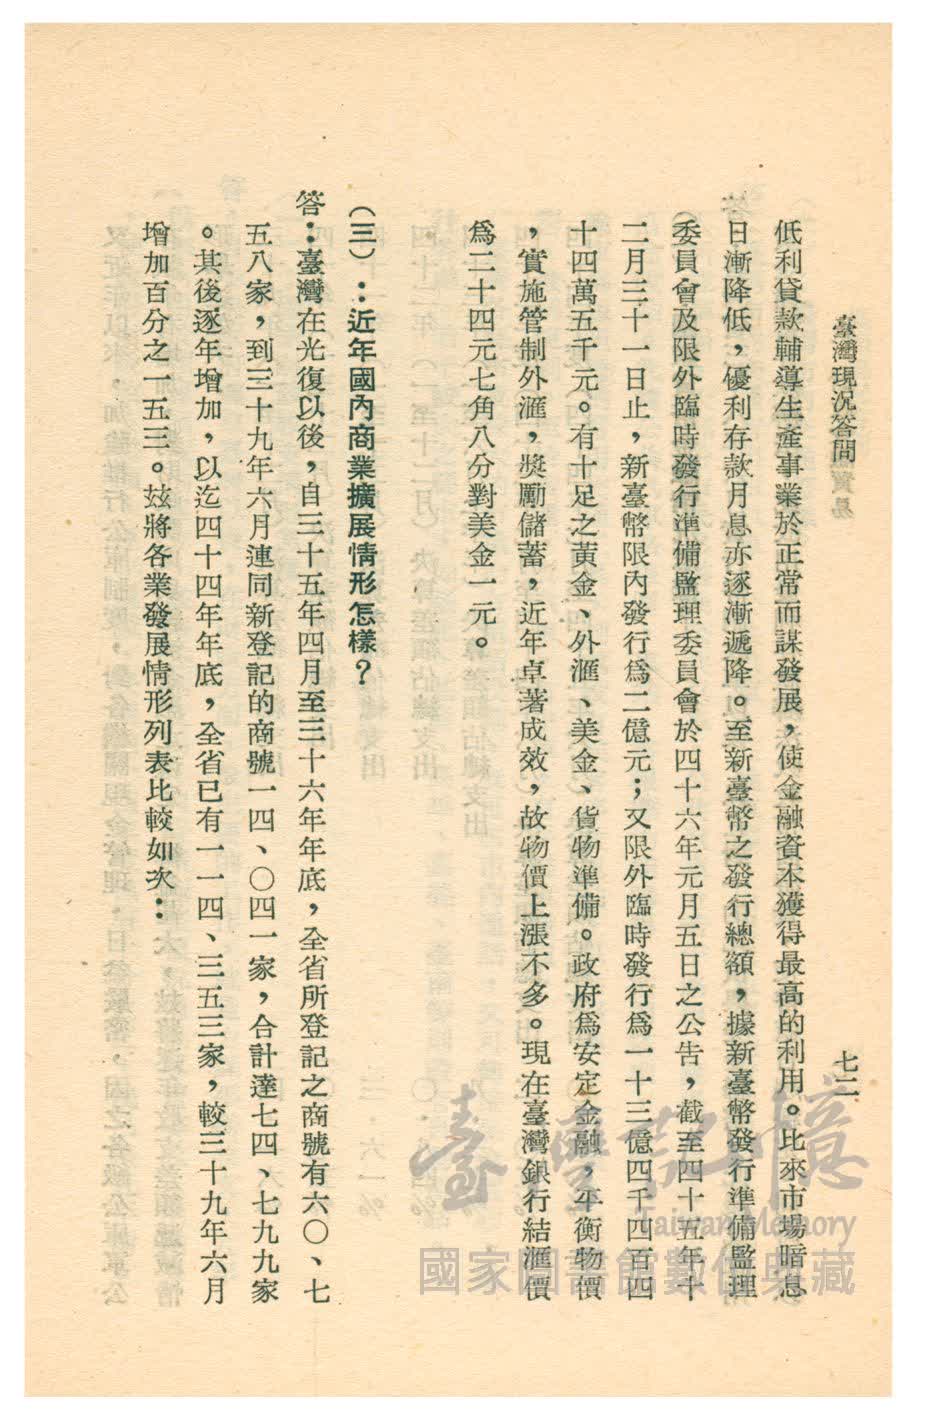 臺灣現況答問
七二
低利貸款輔導生產事業於正常而謀發展，使金融資本獲得最高的利用。比來市場暗息
日漸降低，優利存款月息亦逐漸遞降。至新臺幣之發行總額，據新臺幣發行準備監理
委員會及限外臨時發行準備監理委員會於四十六年元月五日之公告，截至四十五年十
二月三十一日止，新臺幣限內發行爲二億元；又限外臨時發行爲一十三億四千四百四
十四萬五千元。有十足之黃金、外滙、美金、貨物準備。政府爲安定金融，平衡物價
，實施管制外滙，獎勵儲蓄，近年卓著成效，故物價上漲不多。現在臺灣銀行結滙價
爲二十四元七角八分對美金一元。
（三）：近年國內商業擴展情形怎樣？
答：臺灣在光復以後，自三十五年四月至三十六年年底，全省所登記之商號有六〇、七
五八家，到三十九年六月連同新登記的商號一四、〇四一家，合計達七四、七九九家
。其後逐年增加，以迄四十四年年底，全省已有一一四、三五三家，較三十九年六月
增加百分之一五三。玆將各業發展情形列表比較如次：
臺灣記憶
Taiwan Memory
國家圖書館數位典藏